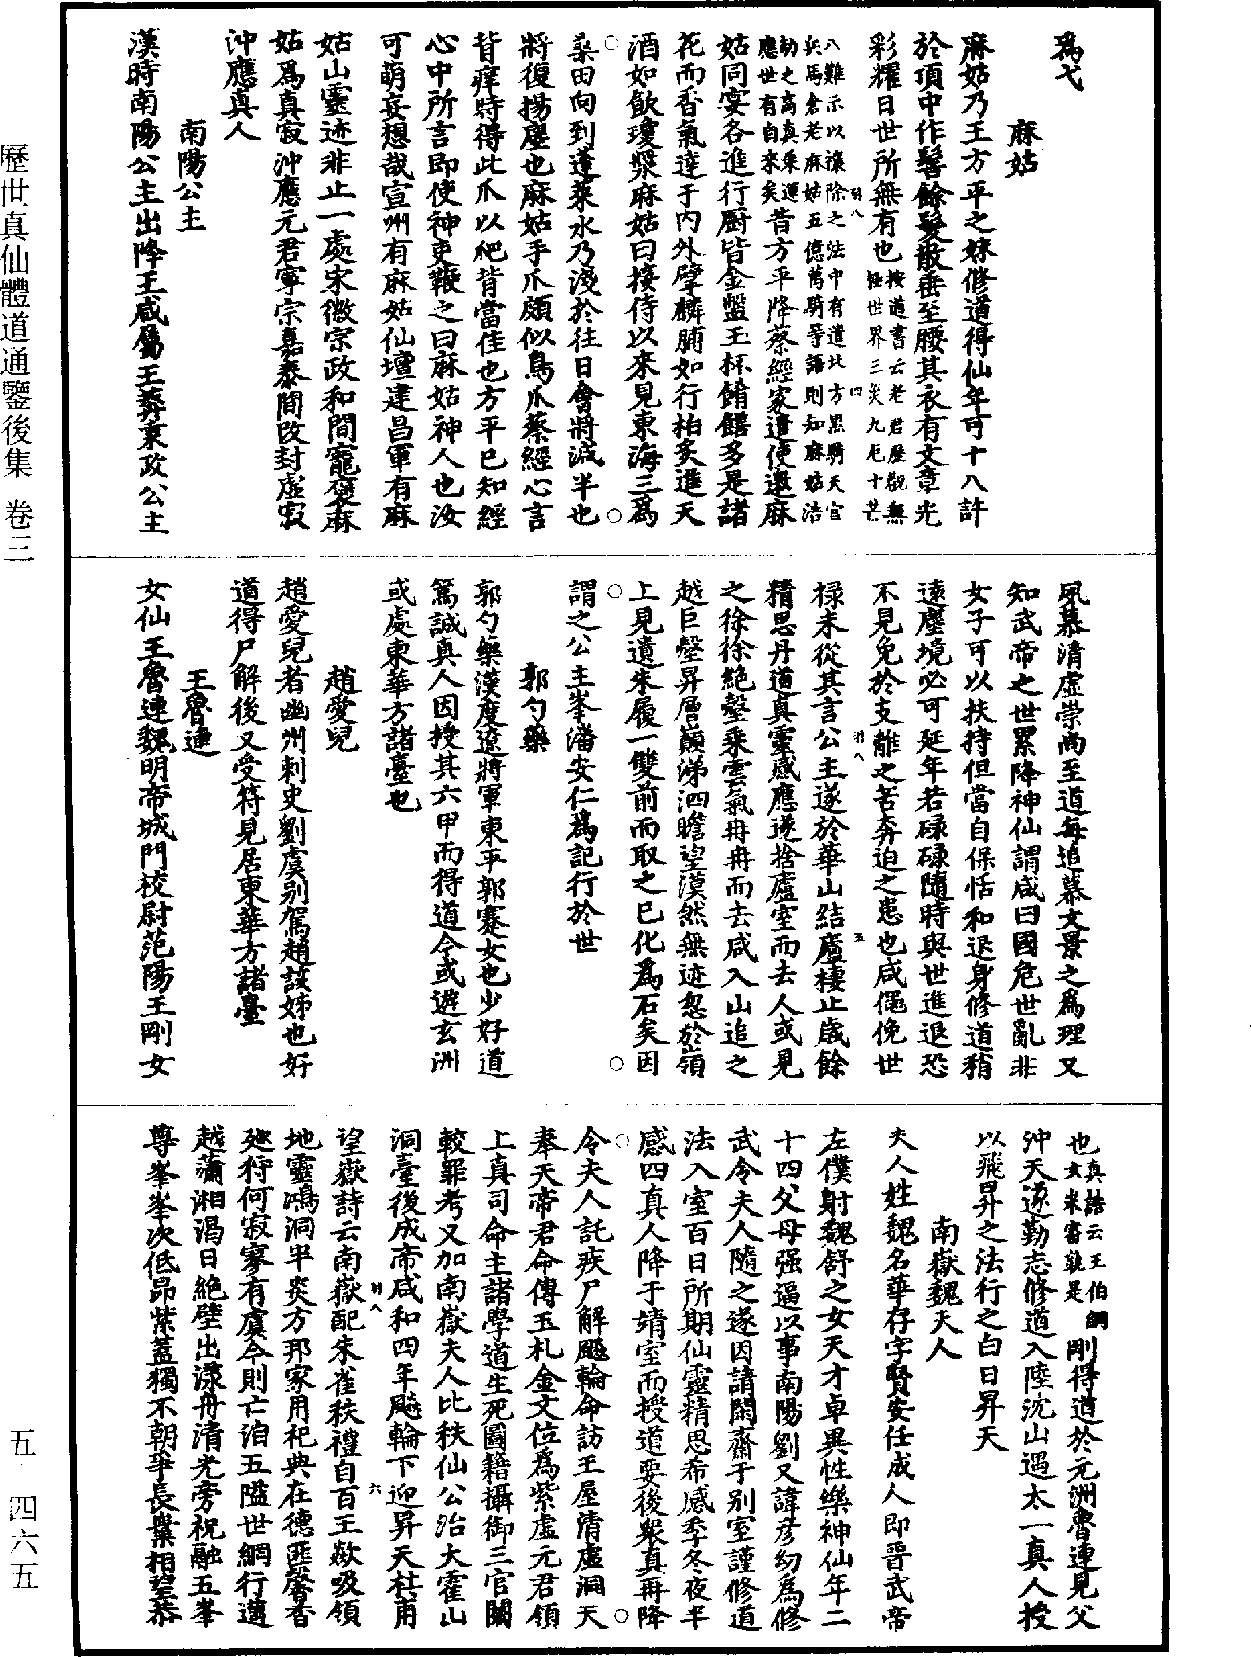 爲弋
麻姑
麻姑乃王方平之妹修道得仙年可十八許
於頂中作髻餘髮散垂至腰其衣有文章光
彩耀日世所無有也按道書云老君歷觀無
極世界三災九厄十芒
八難示以禳除之法中有道北方黑騎天官
兵馬倉老麻姑五億萬騎等語則知麻姑浩
劫之高真乘運
應世有自來矣昔方平降蔡經家遣使邀麻
姑同宴各進行厨皆金盤玉杯餚饍多是諸
花而香氣達于內外擘麟脯如行柏炙進天
酒如飲瓊漿麻姑曰接侍以來見東海三爲
桑田向到蓬萊水乃淺於往日會將減半也
將復揚塵也麻姑手爪頗似鳥爪蔡經心言
背痒時得此爪以爬背當佳也方平已知經
心中所言即使神吏鞭之曰麻姑神人也汝
可萌妄想哉宣州有麻姑仙壇建昌軍有麻
姑山靈迹非止一處宋徽宗政和間寵褒麻
姑爲真寂沖應元君寧宗嘉泰間改封虛寂
沖應真人
南陽公主
漢時南陽公主出降王咸屬王莽秉政公主
夙慕清虛崇尚至道每追慕文景之爲理又
知武帝之世累降神仙謂咸曰國危世亂非
女子可以扶持但當自保恬和退身修道稍
遠塵境必可延年若碌碌隨時與世進退恐
不見免於支離之苦奔迫之患也咸僶俛世
祿未從其言公主遂於華山結廬棲止歲餘
精思丹道真靈感應遂捨廬室而去人或見
之徐徐絕壑乘雲氣冉冉而去咸入山追之
越巨壑昇層巔涕泗瞻望漠然無迹忽於嶺
上見遺朱履一雙前而取之已化爲石矣因
謂之公主峯潘安仁爲記行於世
郭勺藥
郭勺藥漢度遼將軍東平郭騫女也少好道
篤誠真人因授其六甲而得道今或遊玄洲
或處東華方諸臺也
趙愛兒
趙愛兒者幽州刺史劉虞别駕趙該姊也好
道得尸解後又受符見居東華方諸臺
王魯連
女仙王魯連魏明帝城門校尉范陽王剛女
也真誥云王伯綱
女未審孰是剛得道於元洲魯連見父
沖天遂勤志修道入陸沈山遇太一真人授
以飛昇之法行之白日昇天
南嶽魏夫人
夫人姓魏名華存字賢安任成人即晉武帝
左僕射魏舒之女天才卓異性樂神仙年二
十四父母强逼以事南陽劉又諱彦幼爲修
武令夫人隨之遂因請閑齋于别室謹修道
法入室百日所期仙靈精思希感季冬夜半
感四真人降于靖室而授道要後衆真再降
令夫人託疾尸解飈輪命訪王屋清虛洞天
奉天帝君命傳玉札金文位爲紫虛元君領
上真司命主諸學道生死圖籍攝御三官關
較罪考又加南嶽夫人比秩仙公治大霍山
洞臺後成帝咸和四年飈輪下迎昇天杜甫
望嶽詩云南嶽配朱雀秩禮自百王歘吸領
地靈鴻洞半炎方邦家用祀典在德匪馨香
廵狩何寂寥有虞今則亡洎五隘世網行邁
越瀟湘渴日絕壁出漾舟清光旁祝融五峯
尊峯峯次低昂紫蓋獨不朝爭長業相望恭
歷世真仙體道通鑒後集 卷三
五 四六五